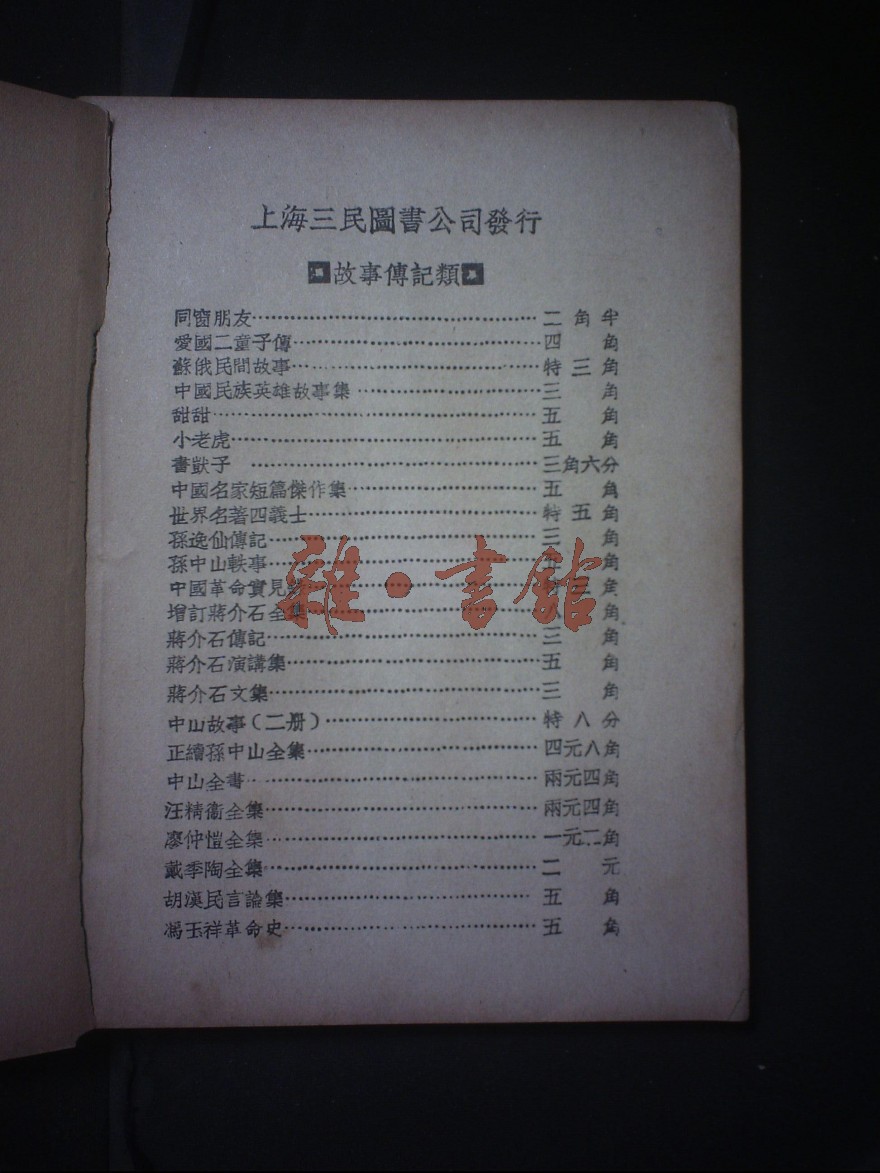 上海三民圖書公司發行
故事傳記類
同窗朋友 二角半
愛國二童子傳 四角
蘇俄民間故事 特三角
中國民族英雄故事集 三角
甜甜 五角
小老虎 五角
書獃子 三角六分
中國名家短篇傑作集 五角
世界名著四義士 特五角
孫逸仙傳記 三角
孫中山軼事 角
中國革命實見 三角
增訂蔣介石全集 八角
蔣介石傳記 三角
蔣介石演講集 五角
蔣介石文集 三角
中山故事(二册) 特八分
正續孫中山全集 四元八角
中山全書 兩元四角
汪精衞全集 兩元四角
廖仲愷全集 一元二角
戴季陶全集 二元
胡漢民言論集 五角
馮玉祥革命史 五角
雜·書館